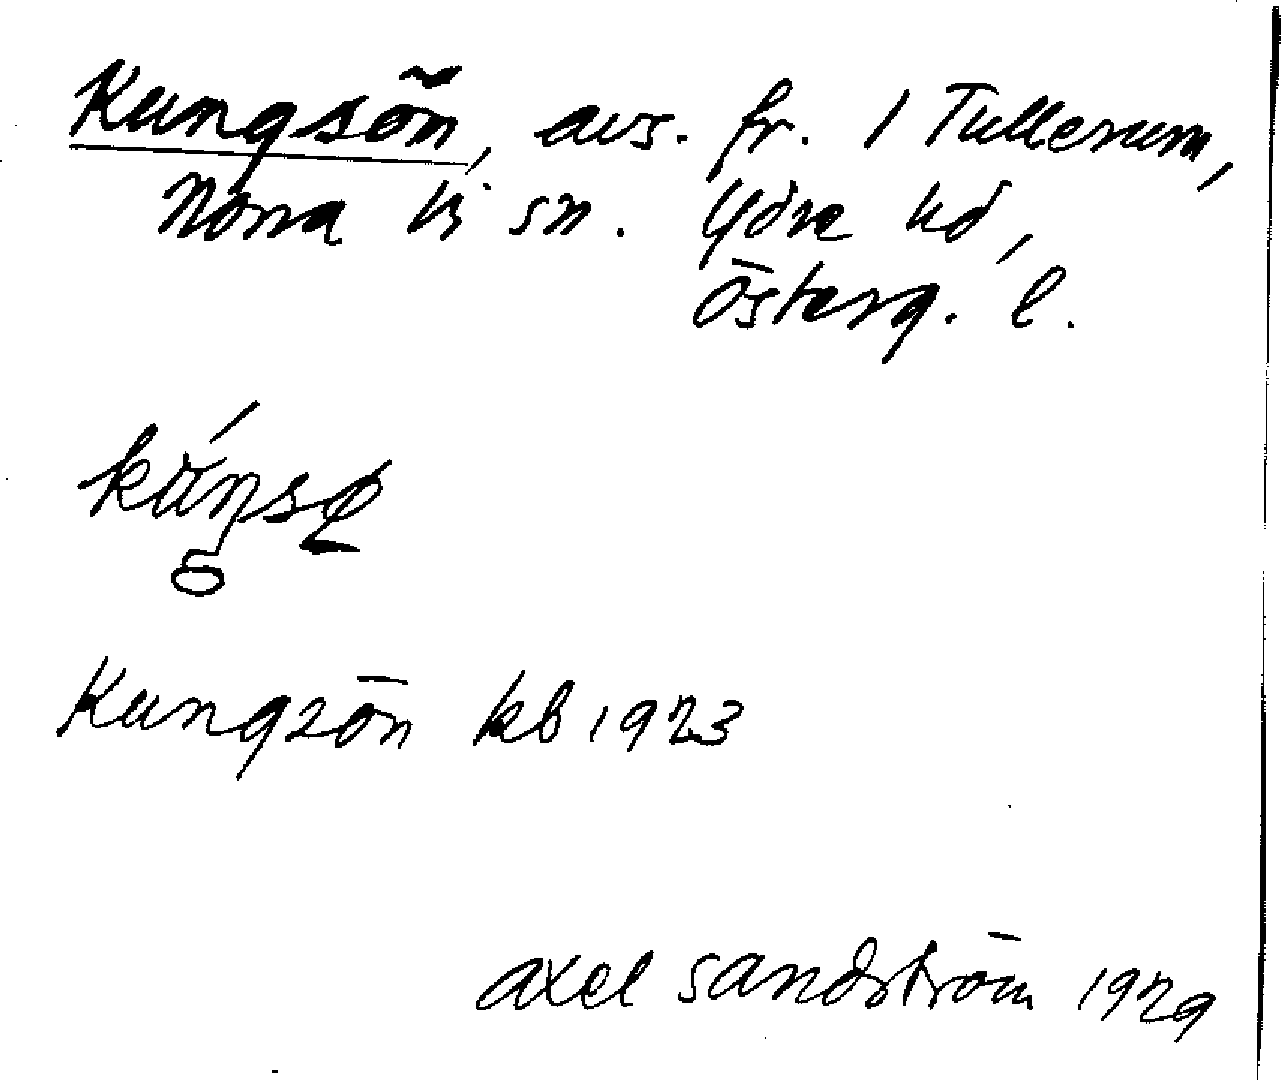 Kungsön, avs. fr. 1 Tullerum,
Norra Vi sn. Ydre hd,
Österg. l.
Kungsön kb 1923
Axel Sandström 1929